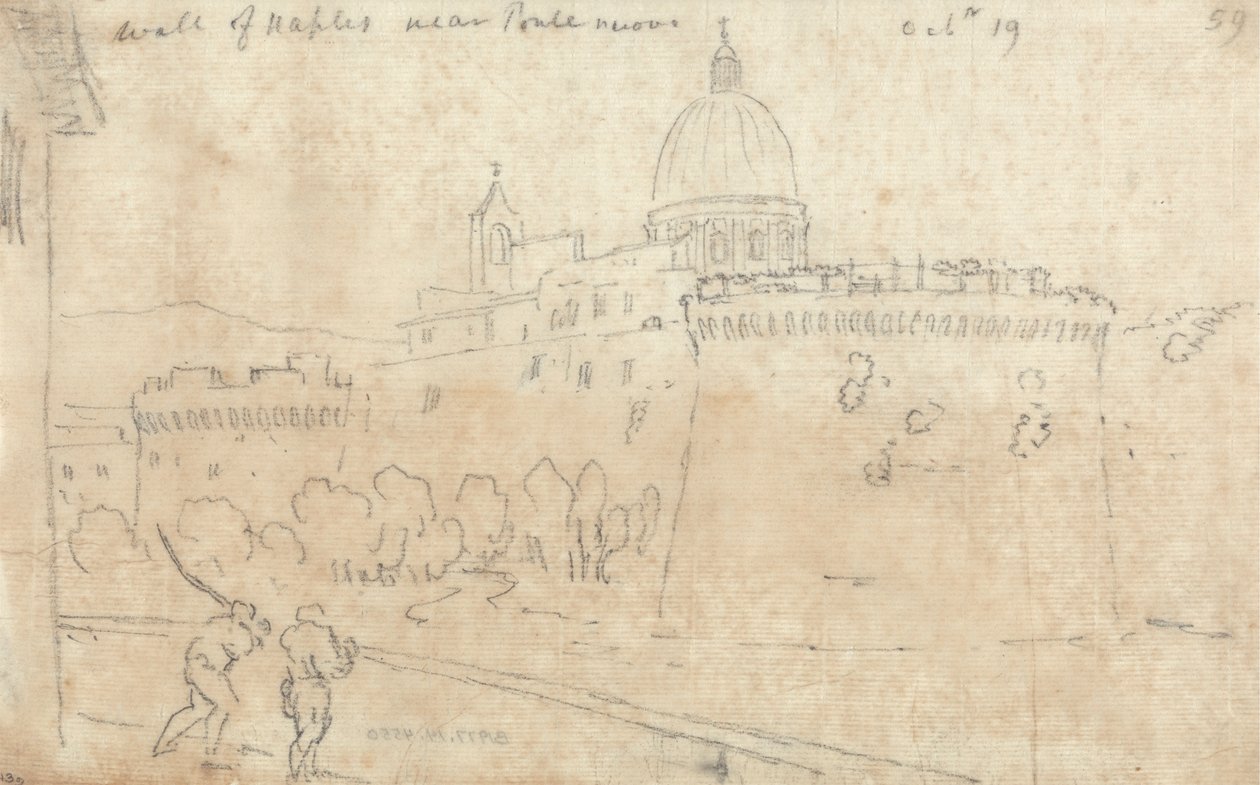 wall of Naples near Ponte nuovo Octr 19 59
B1977.14.4550